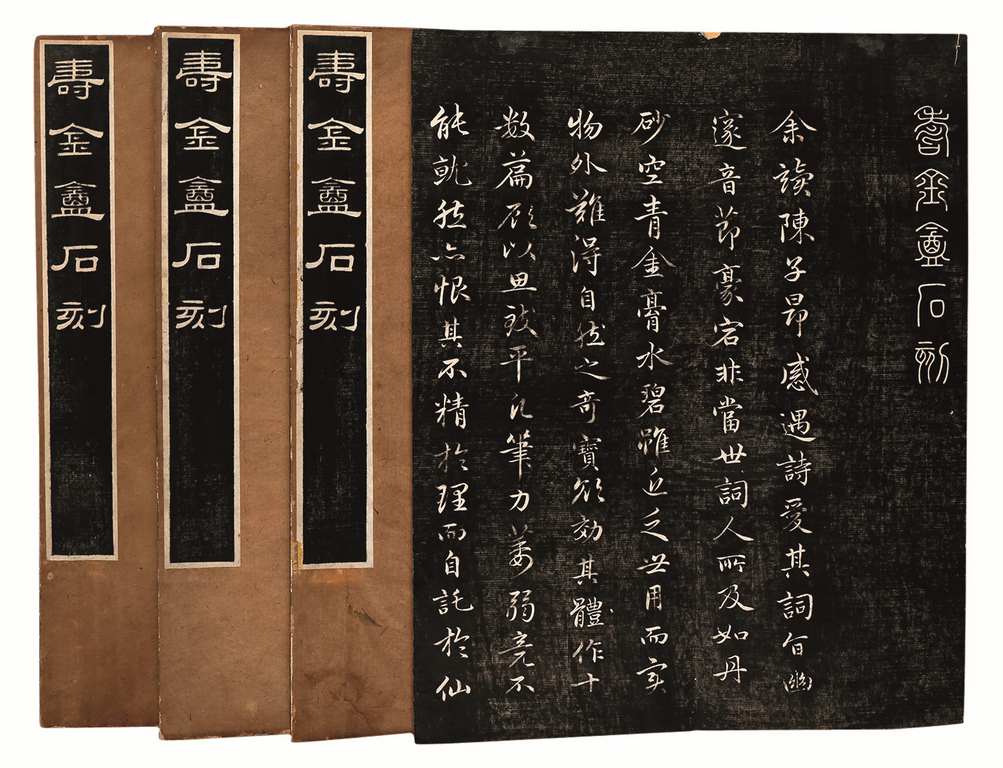 壽金盦石刻
余讀陳子昂感遇詩愛其詞旨幽
邃音節豪宕非當世詞人所及如丹
砂空青金膏水碧雖近乏世用而實
物外難得自然之奇寶欲效其體作十
數篇顧以思致平凡筆力萎弱竟不
能就然亦恨其不精於理而自託於仙
壽金盦石刻
壽金盦石刻
壽金盦石刻